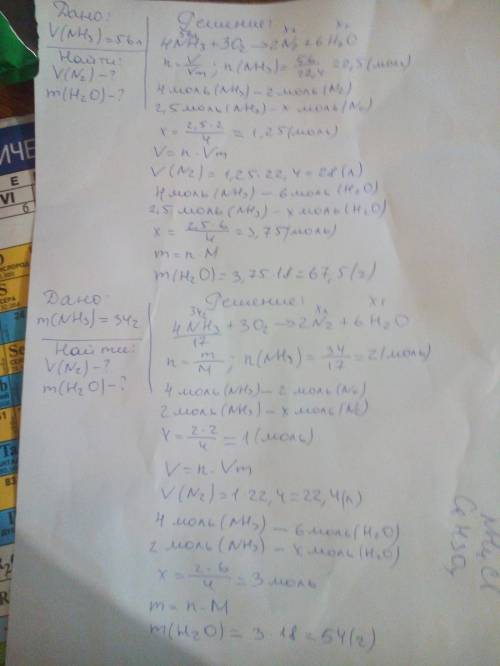 Дано:
V(NH₃)=56л
Найти:
V(N₂)-?
m(H₂O)-?
Решение:
56л xл xг
4NH₃+3O₂→2N₂+6H₂O
n=V/Vm; n(NH₃)=56/22,4=2,5(моль)
4 моль(NH₃)-2 моль(N₂)
2,5 моль(NH₃)-x моль(N₂)
x=2,5·2/4=1,25(моль)
V=n·Vm
V(N₂)=1,25·22,4=28(л)
4 моль(NH₃)-6 моль(H₂O)
2,5 моль(NH₃)-x моль(H₂O)
x=2,5·6/4=3,75(моль)
m=n·M
m(H₂O)=3,75·18=67,5(г)
Дано:
m(NH₃)=34г
Найти:
V(N₂)-?
m(H₂O)-?
Решение:
34г xл xг
4NH₃+3O₂→2N₂+6H₂O
17
n=m/M; n(NH₃)=34/17=2(моль)
4 моль(NH₃)-2 моль(N₂)
2 моль(NH₃)-x моль(N₂)
x=2·2/4=1(моль)
V=n·Vm
V(N₂)=1·22,4=22,4(л)
4 моль(NH₃)-6 моль(H₂O)
2 моль(NH₃)-x моль(H₂O)
x=2·6/4=3 моль
m=n·M
m(H₂O)=3·18=54(г)
NH₄Cl
E
VI
6